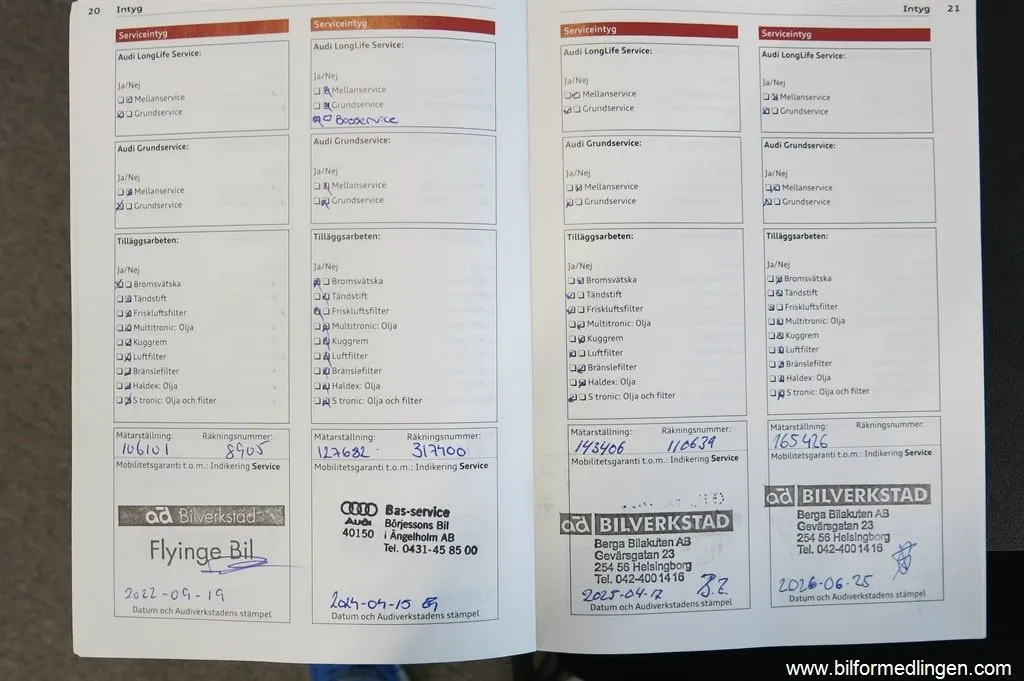 20 Intyg
Serviceintyg
Audi LongLife Service:
Ja/Nej
Mellanservice
Grundservice
Audi Grundservice:
Ja/Nej
Mellanservice
Grundservice
Tilläggsarbeten:
Ja/Nej
Bromsvätska
Tändstift
Friskluftsfilter
Multitronic: Olja
Kuggrem
Luftfilter
Bränslefilter
Haldex: Olja
S tronic: Olja och filter
Mätarställning: Räkningsnummer:
106101 8905
Mobilitetsgaranti t.o.m.: Indikering Service
ad Bilverkstad
Flyinge Bil
2022-09-19
Datum och Audiverkstadens stämpel
Serviceintyg
Audi LongLife Service:
Ja/Nej
Mellanservice
Grundservice
Basservice
Audi Grundservice:
Ja/Nej
Mellanservice
Grundservice
Tilläggsarbeten:
Ja/Nej
Bromsvätska
Tändstift
Friskluftsfilter
Multitronic: Olja
Kuggrem
Luftfilter
Bränslefilter
Haldex: Olja
S tronic: Olja och filter
Mätarställning: Räkningsnummer:
127682 317400
Mobilitetsgaranti t.o.m.: Indikering Service
Bas-service
Audi Börjessons Bil
40150 i Ängelholm AB
Tel. 0431-45 85 00
2024-04-15
Datum och Audiverkstadens stämpel
Intyg 21
Serviceintyg
Audi LongLife Service:
Ja/Nej
Mellanservice
Grundservice
Audi Grundservice:
Ja/Nej
Mellanservice
Grundservice
Tilläggsarbeten:
Ja/Nej
Bromsvätska
Tändstift
Friskluftsfilter
Multitronic: Olja
Kuggrem
Luftfilter
Bränslefilter
Haldex: Olja
S tronic: Olja och filter
Mätarställning: Räkningsnummer:
143406 110639
Mobilitetsgaranti t.o.m.: Indikering Service
ad BILVERKSTAD
Berga Bilakuten AB
Gevärsgatan 23
254 56 Helsingborg
Tel. 042-400 14 16
2025-04-17
Datum och Audiverkstadens stämpel
Serviceintyg
Audi LongLife Service:
Ja/Nej
Mellanservice
Grundservice
Audi Grundservice:
Ja/Nej
Mellanservice
Grundservice
Tilläggsarbeten:
Ja/Nej
Bromsvätska
Tändstift
Friskluftsfilter
Multitronic: Olja
Kuggrem
Luftfilter
Bränslefilter
Haldex: Olja
S tronic: Olja och filter
Mätarställning: Räkningsnummer:
165426
Mobilitetsgaranti t.o.m.: Indikering Service
ad BILVERKSTAD
Berga Bilakuten AB
Gevärsgatan 23
254 56 Helsingborg
Tel. 042-400 14 16
2026-06-25
Datum och Audiverkstadens stämpel
www.bilformedlingen.com